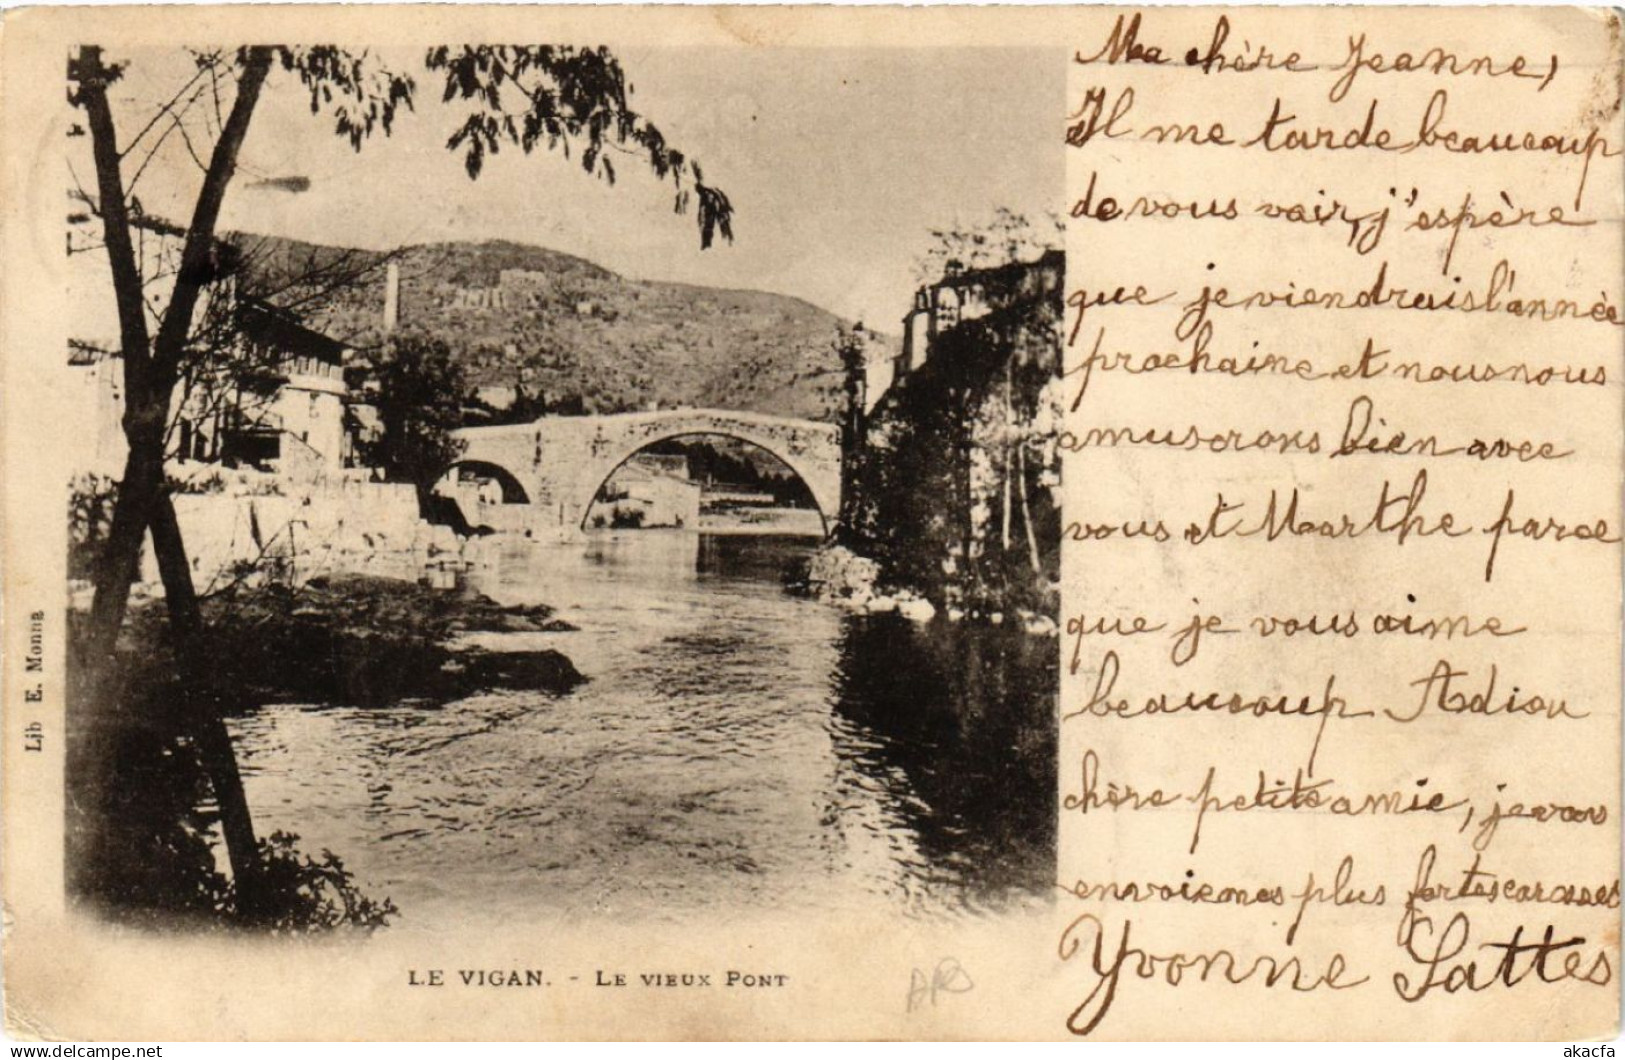 Ma chère Jeanne,
Il me tarde beaucoup
de vous voir, j'espère
que je viendrais l'année
prochaine et nous nous
amuserons bien avec
vous et Marthe parce
que je vous aime
beaucoup Adieu
chère petite amie, je vous
envoie mes plus fortes caresses
Yvonne Lattes
Lib E. Monna
LE VIGAN. - LE VIEUX PONT
akacfa